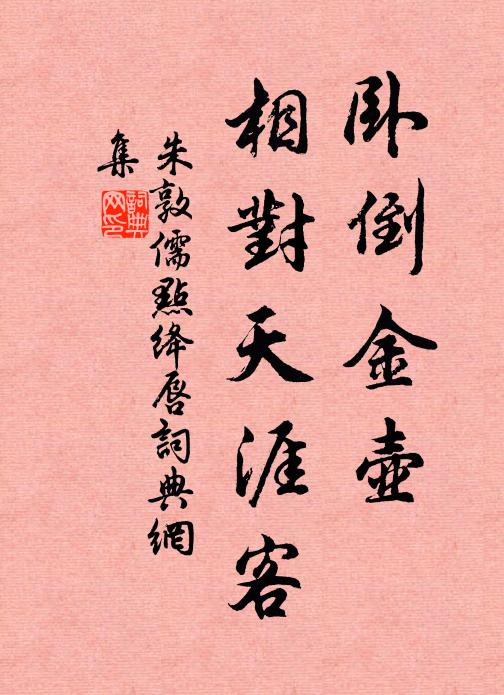 卧倒金壺
相對天涯客
朱敦儒點絳唇詞典網
集
詞典
网印